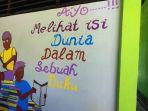 Ayo......!!!
Melihat isi
Dunia
Dalam
Sebuah
Buku